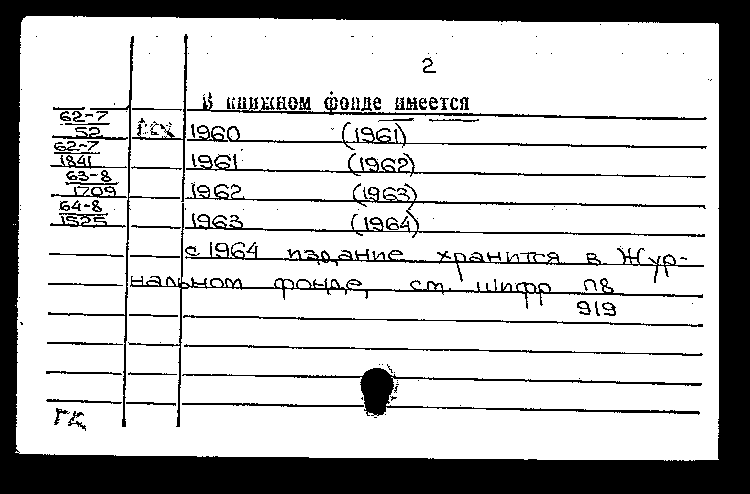 2
В книжном фонде имеется
62-7
52 1960 (1961)
62-7
1841 1961 (1962)
63-8
1709 1962 (1963)
64-8
1525 1963 (1964)
с 1964 издание хранится в Жур-
нальном фонде, см. шифр П8
919
ГК